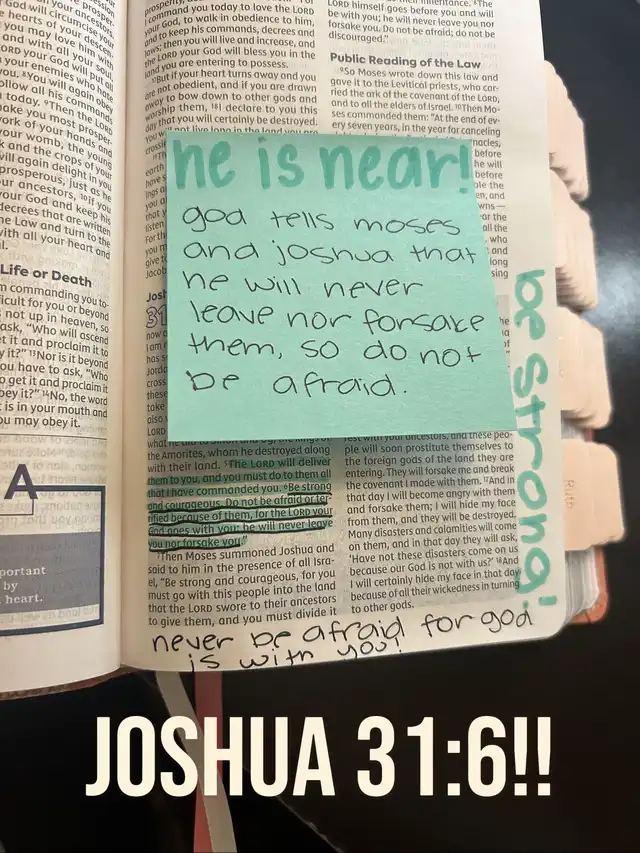 prosperity,
command you today to love the LORD
your God, to walk in obedience to him,
and to keep his commands, decrees and
laws; then you will live and increase, and
the LORD your God will bless you in the
land you are entering to possess.
But if your heart turns away and you
are not obedient, and if you are drawn
away to bow down to other gods and
worship them, 18I declare to you this
day that you will certainly be destroyed.
You will not live long in the land you are
earth
have s
that y
listen
For th
give to
Jacob
Josh
31
now a
I am n
has s
Jorda
cross
these
take
also v
LORD
the Amorites, whom he destroyed along
with their land. 5The LORD will deliver
them to you, and you must do to them all
that I have commanded you. 6Be strong
and courageous. Do not be afraid or ter-
rified because of them, for the LORD your
God goes with you; he will never leave
you nor forsake you."
7Then Moses summoned Joshua and
said to him in the presence of all Isra-
el, "Be strong and courageous, for you
must go with this people into the land
that the LORD swore to their ancestors
to give them, and you must divide it
their inheritance. 8The
LORD himself goes before you and will
be with you; he will never leave you nor
forsake you. Do not be afraid; do not be
discouraged."
Public Reading of the Law
9So Moses wrote down this law and
gave it to the Levitical priests, who car-
ried the ark of the covenant of the LORD,
and to all the elders of Israel. 10Then Mo-
ses commanded them: "At the end of ev-
ery seven years, in the year for canceling
nacles,
before
he will
before
ple the
en, and
wns—
ar the
all the
who
and
long
sing
rest with your ancestors, and these peo-
ple will soon prostitute themselves to
the foreign gods of the land they are
entering. They will forsake me and break
the covenant I made with them. 17And in
that day I will become angry with them
and forsake them; I will hide my face
from them, and they will be destroyed.
Many disasters and calamities will come
on them, and in that day they will ask,
'Have not these disasters come on us
because our God is not with us?' 18And
I will certainly hide my face in that day
because of all their wickedness in turning
to other gods.
he is near!
god tells moses
and joshua that
he will never
leave nor forsake
them, so do not
be afraid.
be strong!
never be afraid for god
is with you!
Life or Death
m commanding you to-
ficult for you or beyond
not up in heaven, so
ask, "Who will ascend
et it and proclaim it to
y it?" 13Nor is it beyond
ou have to ask, "Who
o get it and proclaim it
bey it?" 14No, the word
is in your mouth and
ou may obey it.
A
portant
by
heart.
Ruth
JOSHUA 31:6!!